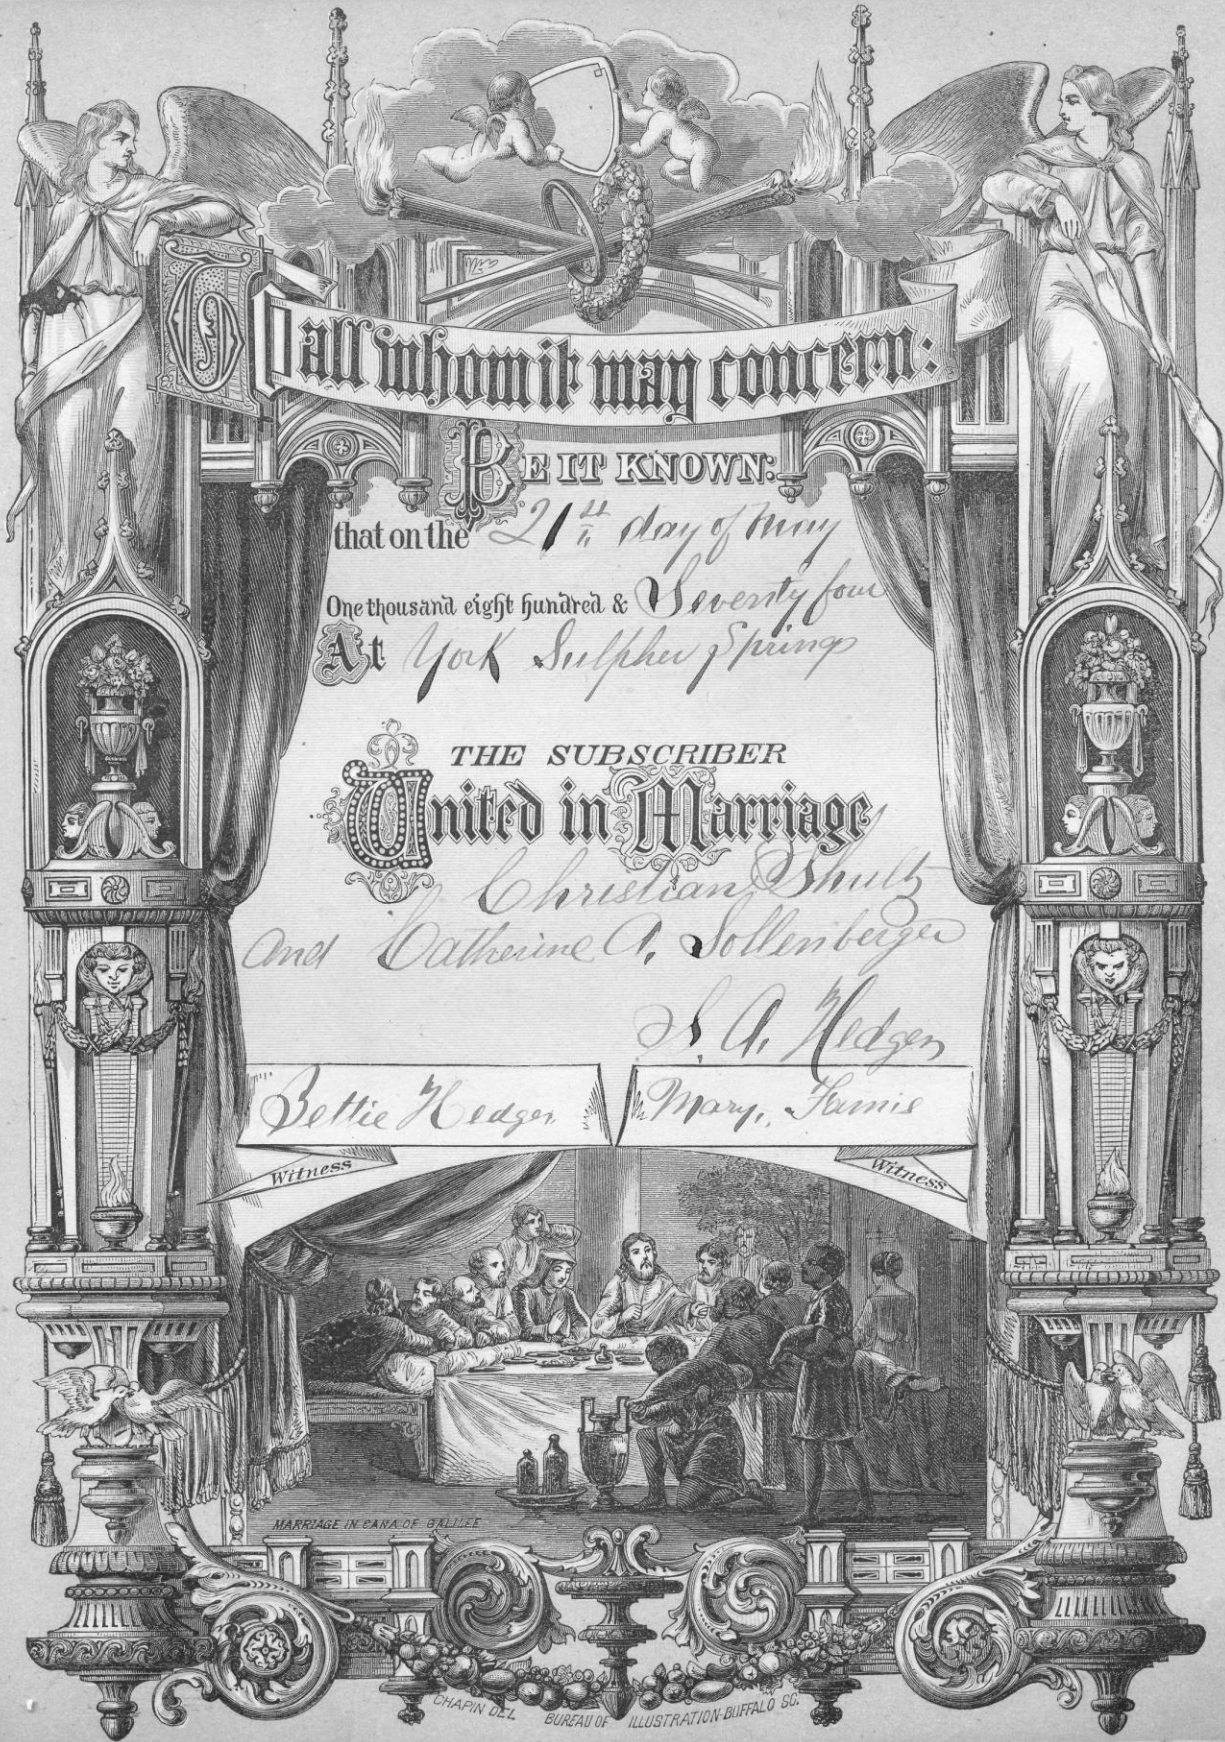 To all whom it may concern:
BE IT KNOWN:
that on the 21st day of May
One thousand eight hundred & Seventy four
At York Sulpher Springs
THE SUBSCRIBER
United in Marriage
Christian Shultz
And Catherine A. Sollenberger
S. A. Hedges
Bettie Hedges Mary, Famie
Witness Witness
MARRIAGE IN CANA OF GALILEE
CHAPIN DEL BUREAU OF ILLUSTRATION-BUFFALO SC.